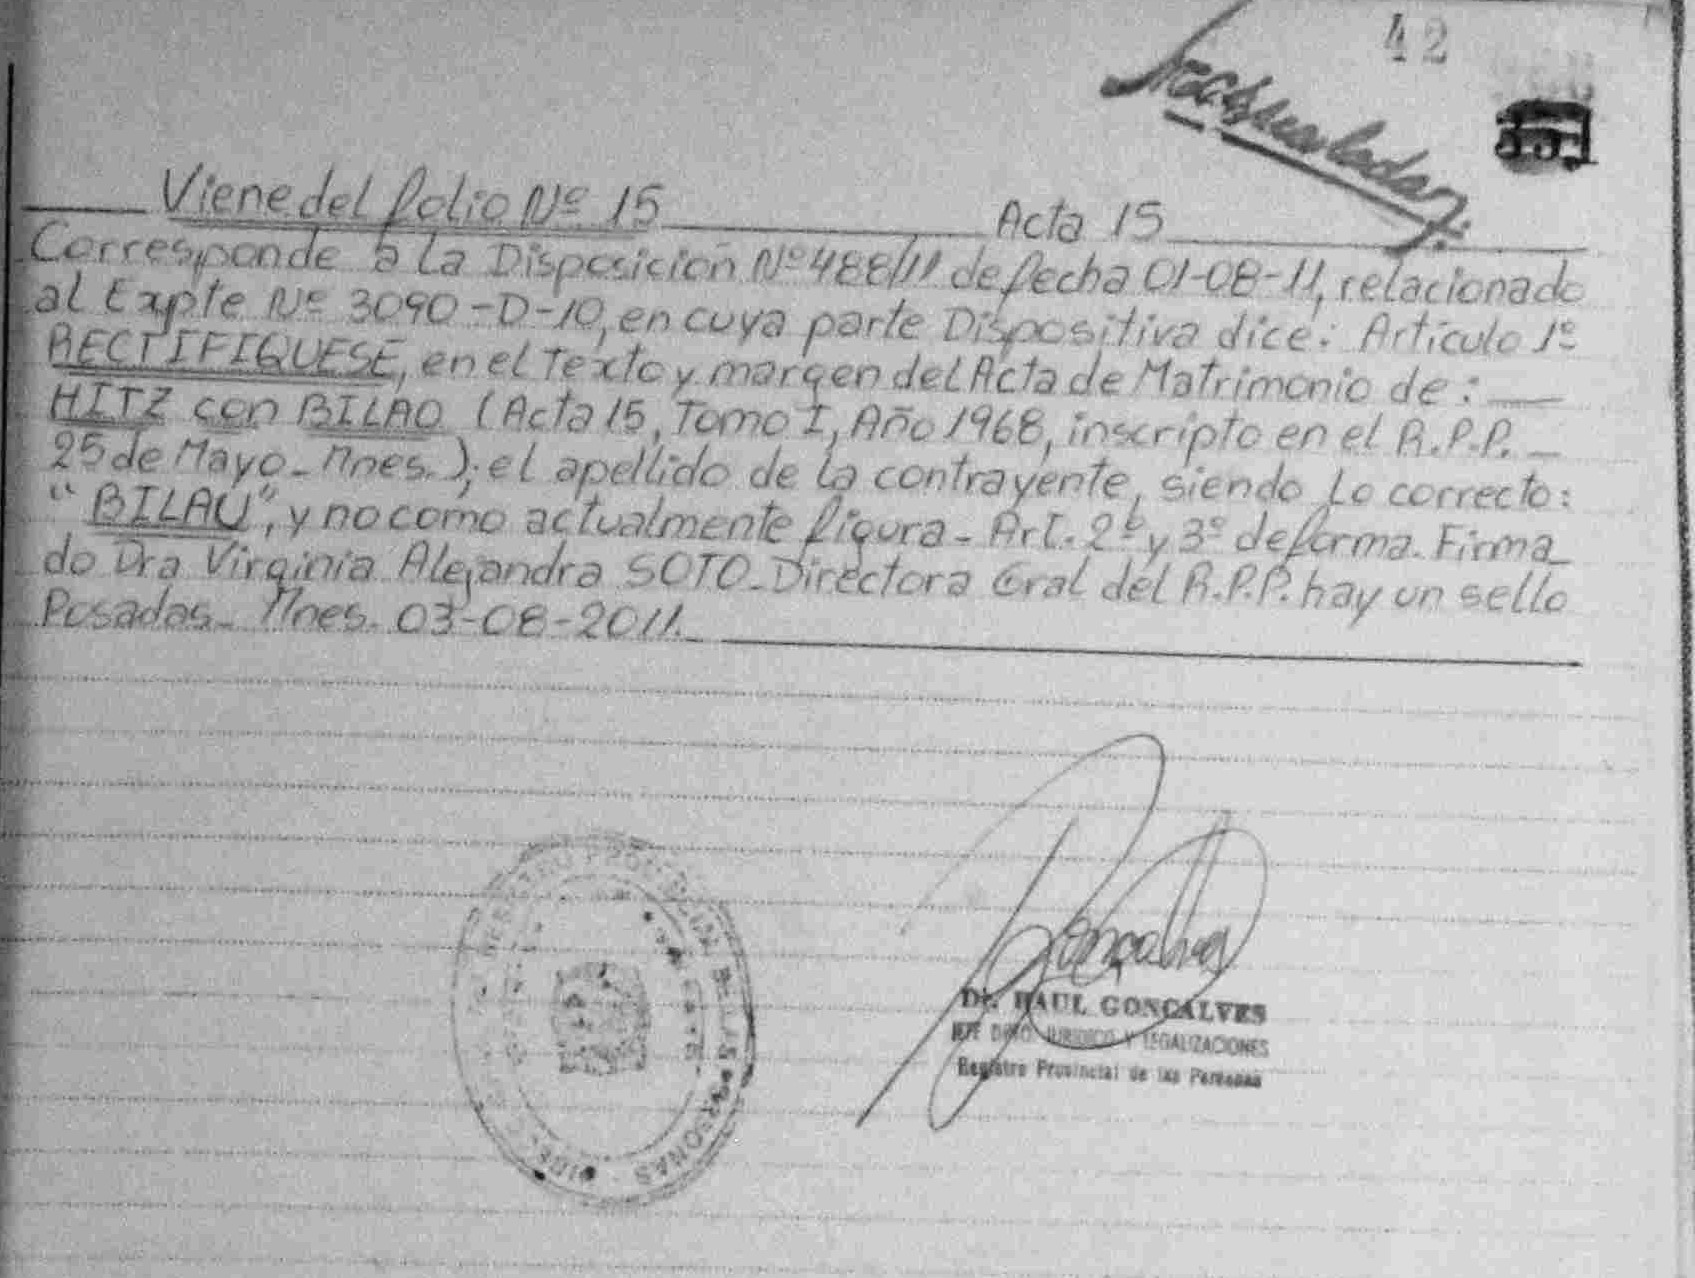 42
Viene del folio Nº 15 Acta 15
Corresponde a la Disposición Nº 488/11 de fecha 01-08-11, relacionado
al Expte Nº 3090-D-10, en cuya parte Dispositiva dice: Artículo 1º
RECTIFIQUESE, en el Texto y margen del Acta de Matrimonio de:
HITZ con BILAO (Acta 15, Tomo I, Año 1968, inscripto en el R.P.P.
25 de Mayo - Mnes.); el apellido de la contrayente, siendo Lo correcto:
"BILAU", y no como actualmente figura - Art. 2º y 3º de forma. Firma
do Dra Virginia Alejandra SOTO - Directora Gral del R.P.P. hay un sello
Posadas - Mnes. 03-08-2011.
Goncalves
Dr. RAUL GONCALVES
JEFE DPTO. JURIDICO Y LEGALIZACIONES
Registro Provincial de las Personas
REGISTRO PROVINCIAL DE LAS PERSONAS